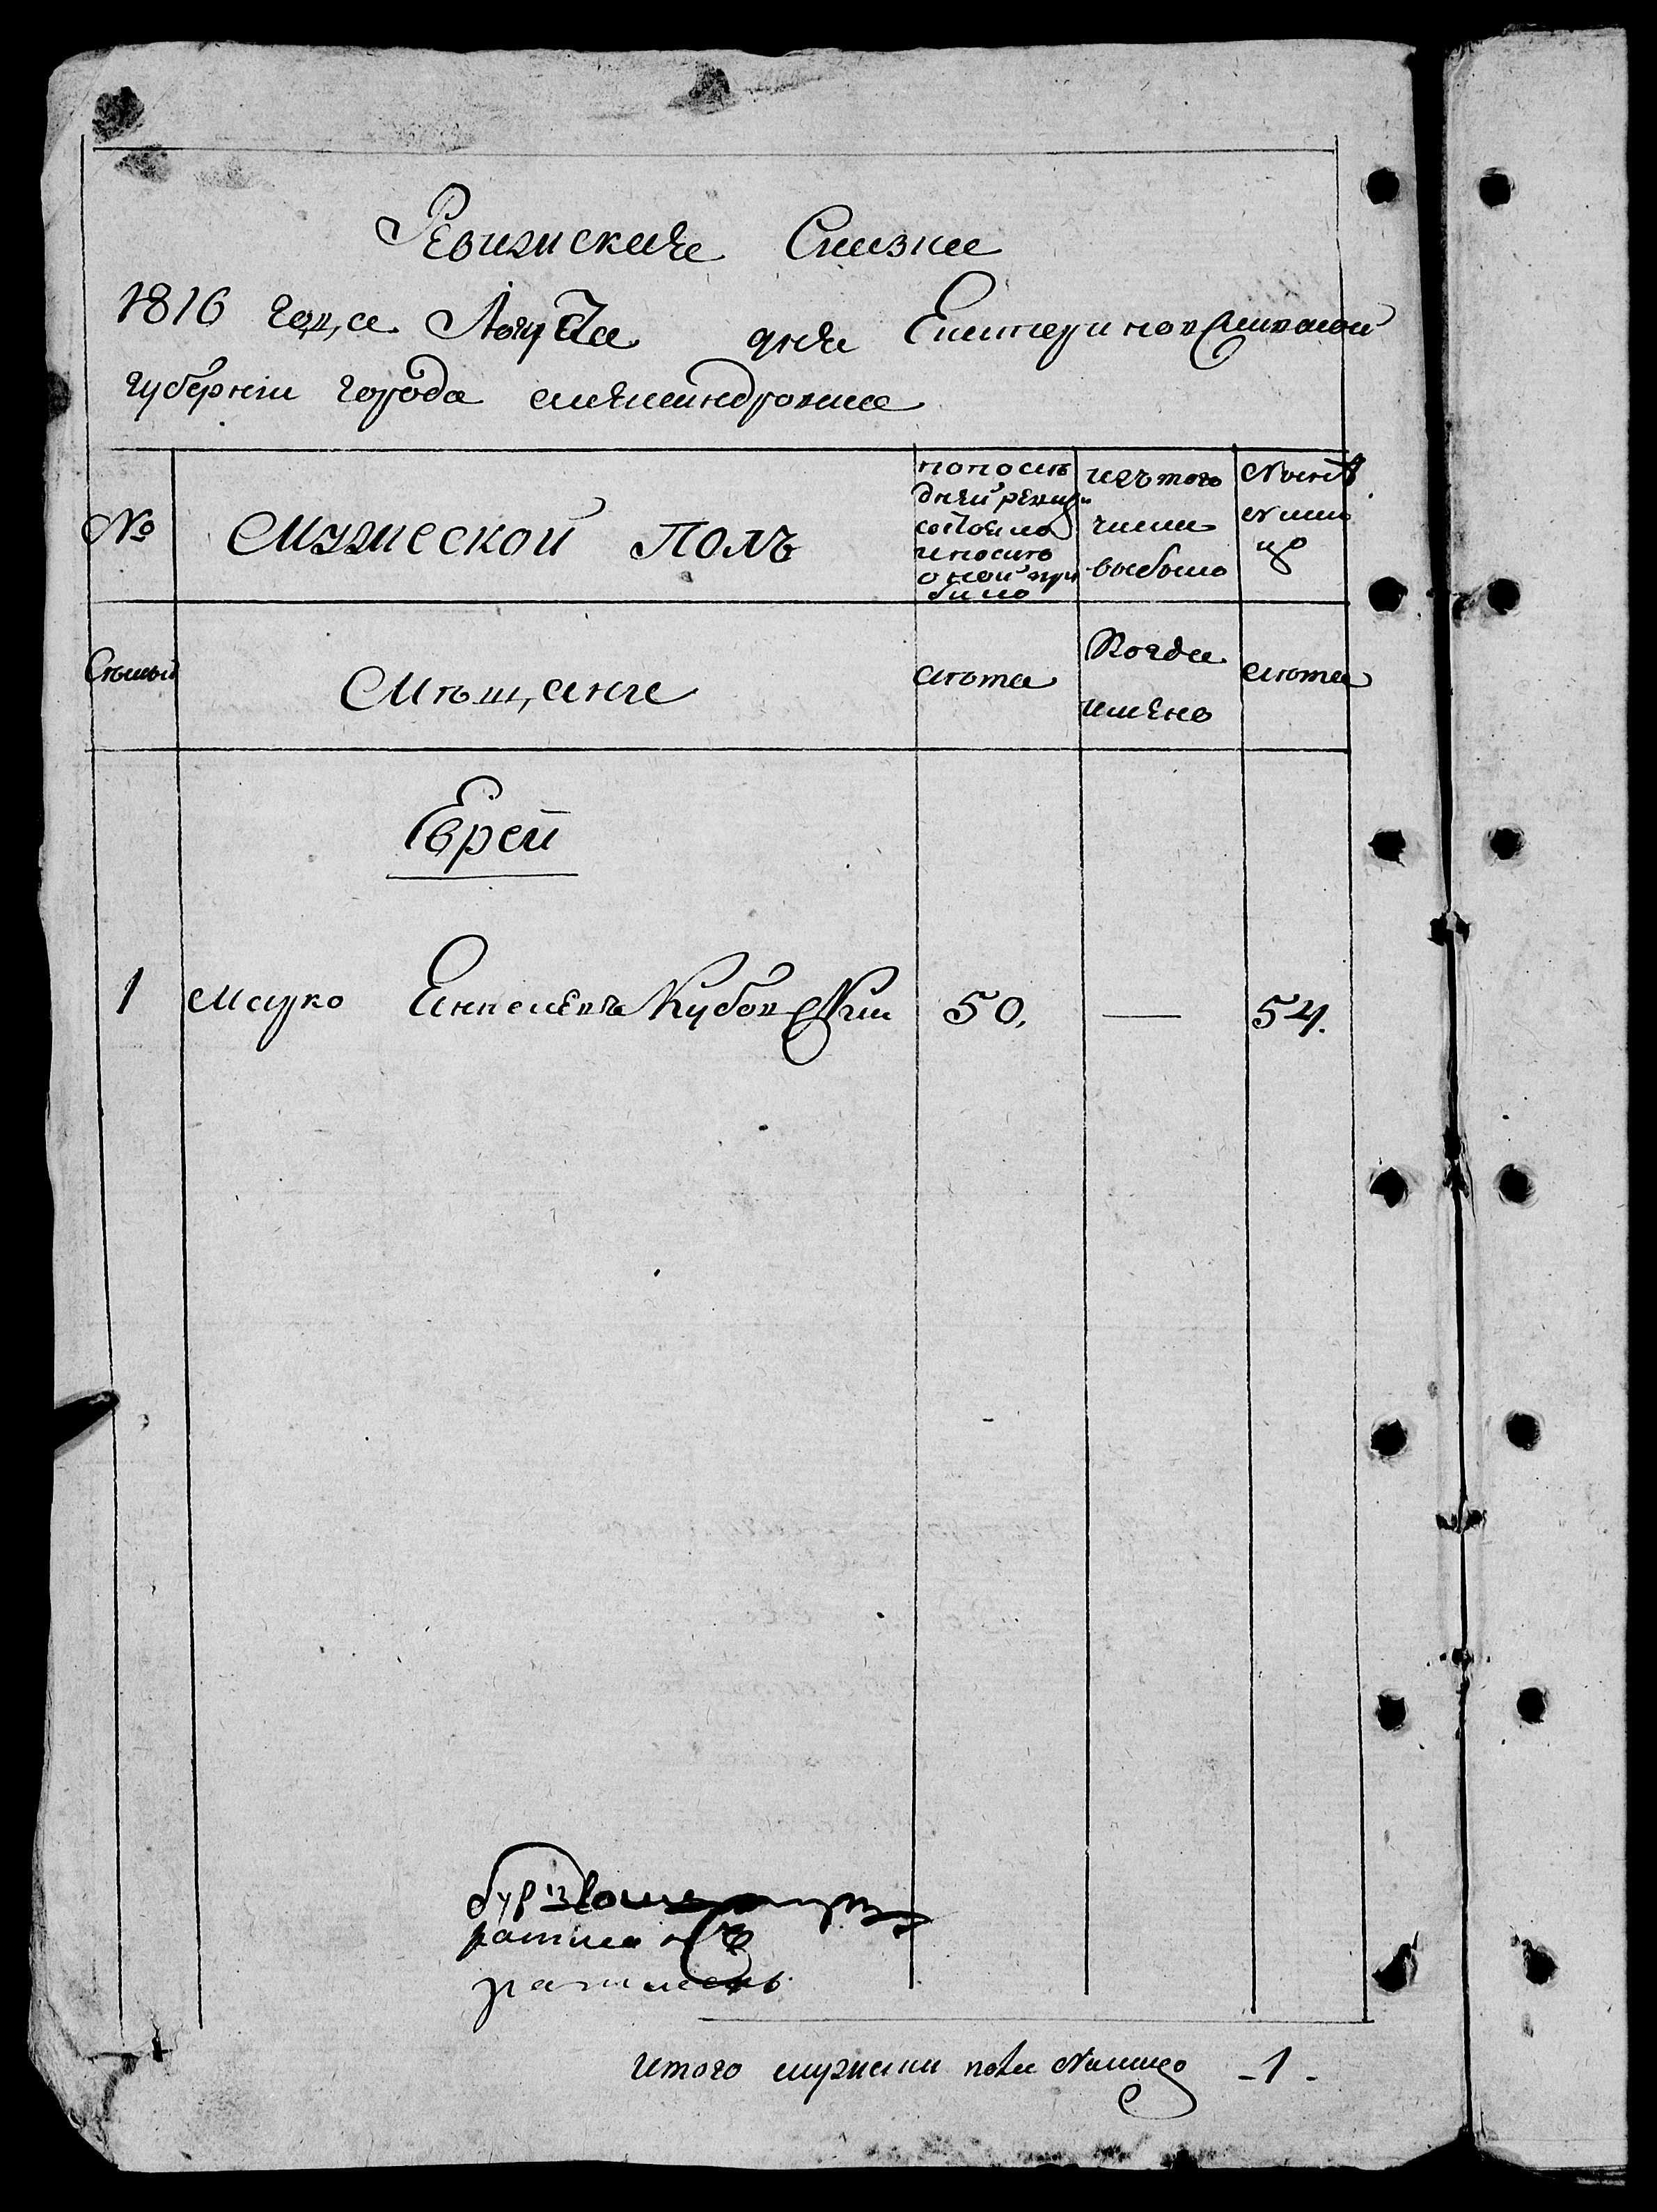 Ревизская Сказка
1816 года Августа дня Екатеринославской
губернии города александровска
№
Мужеской Полъ
попослѣ
дней ревизи
состояло
и послѣ
оной при
было
изъ того
числа
выбыло
Нынѣ
на ли
цо
Семьи
Мѣщане
лѣта
Когда
имено
лѣта
Евреи
1 Марко Куб 50. — 54.
ратман
ратманъ
итого мужеска пола налицо -1-